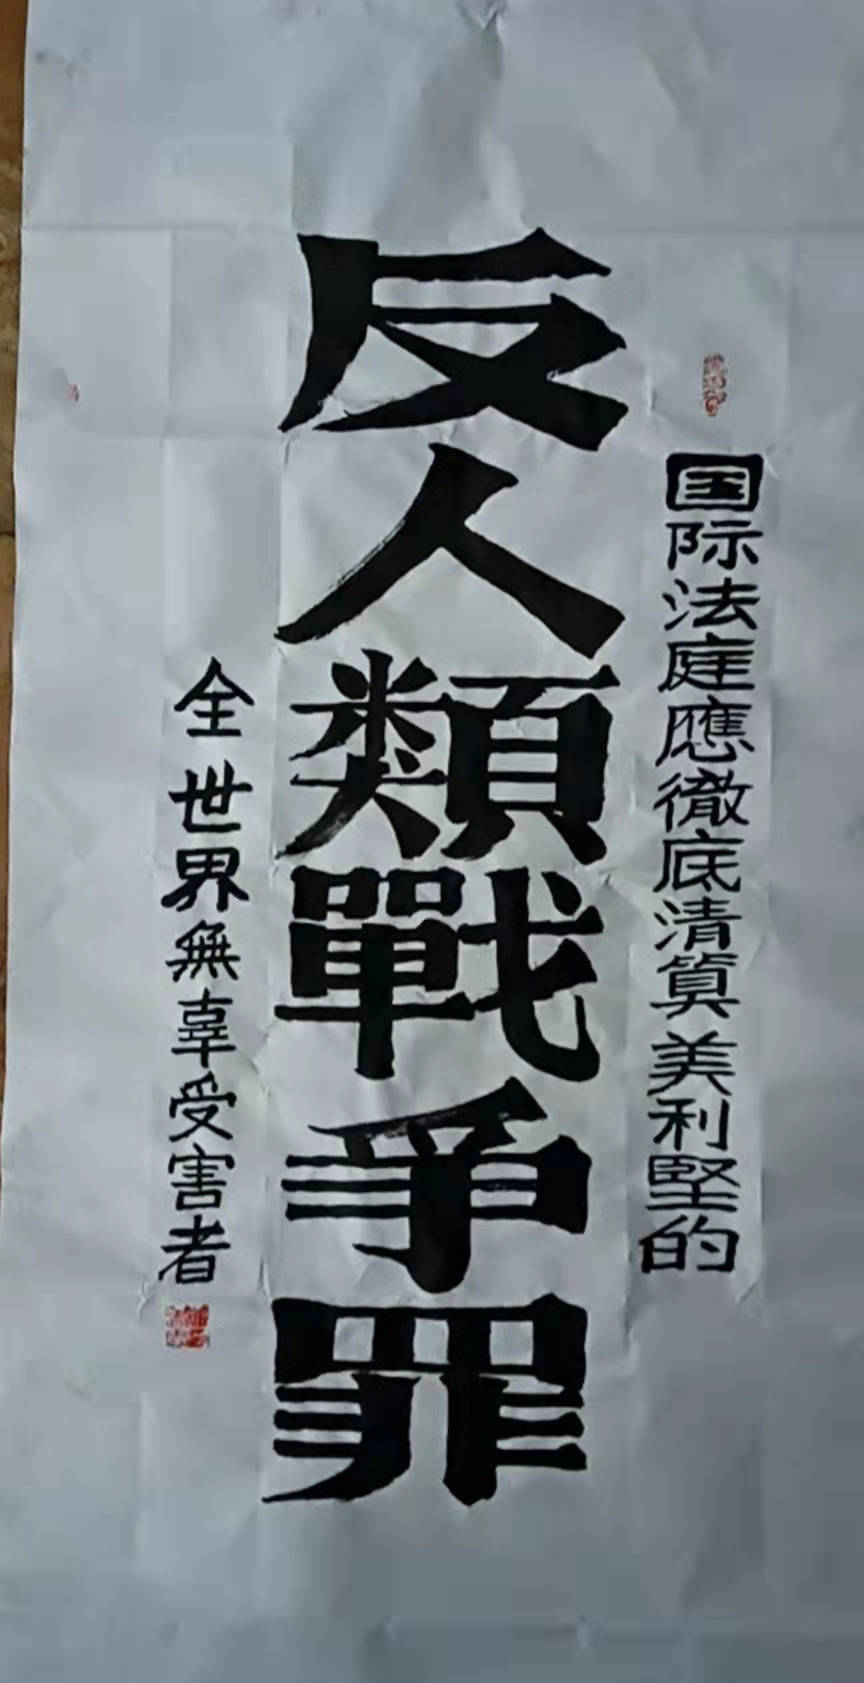 国际法庭應徹底清算美利堅的
反人類戰爭罪
全世界無辜受害者